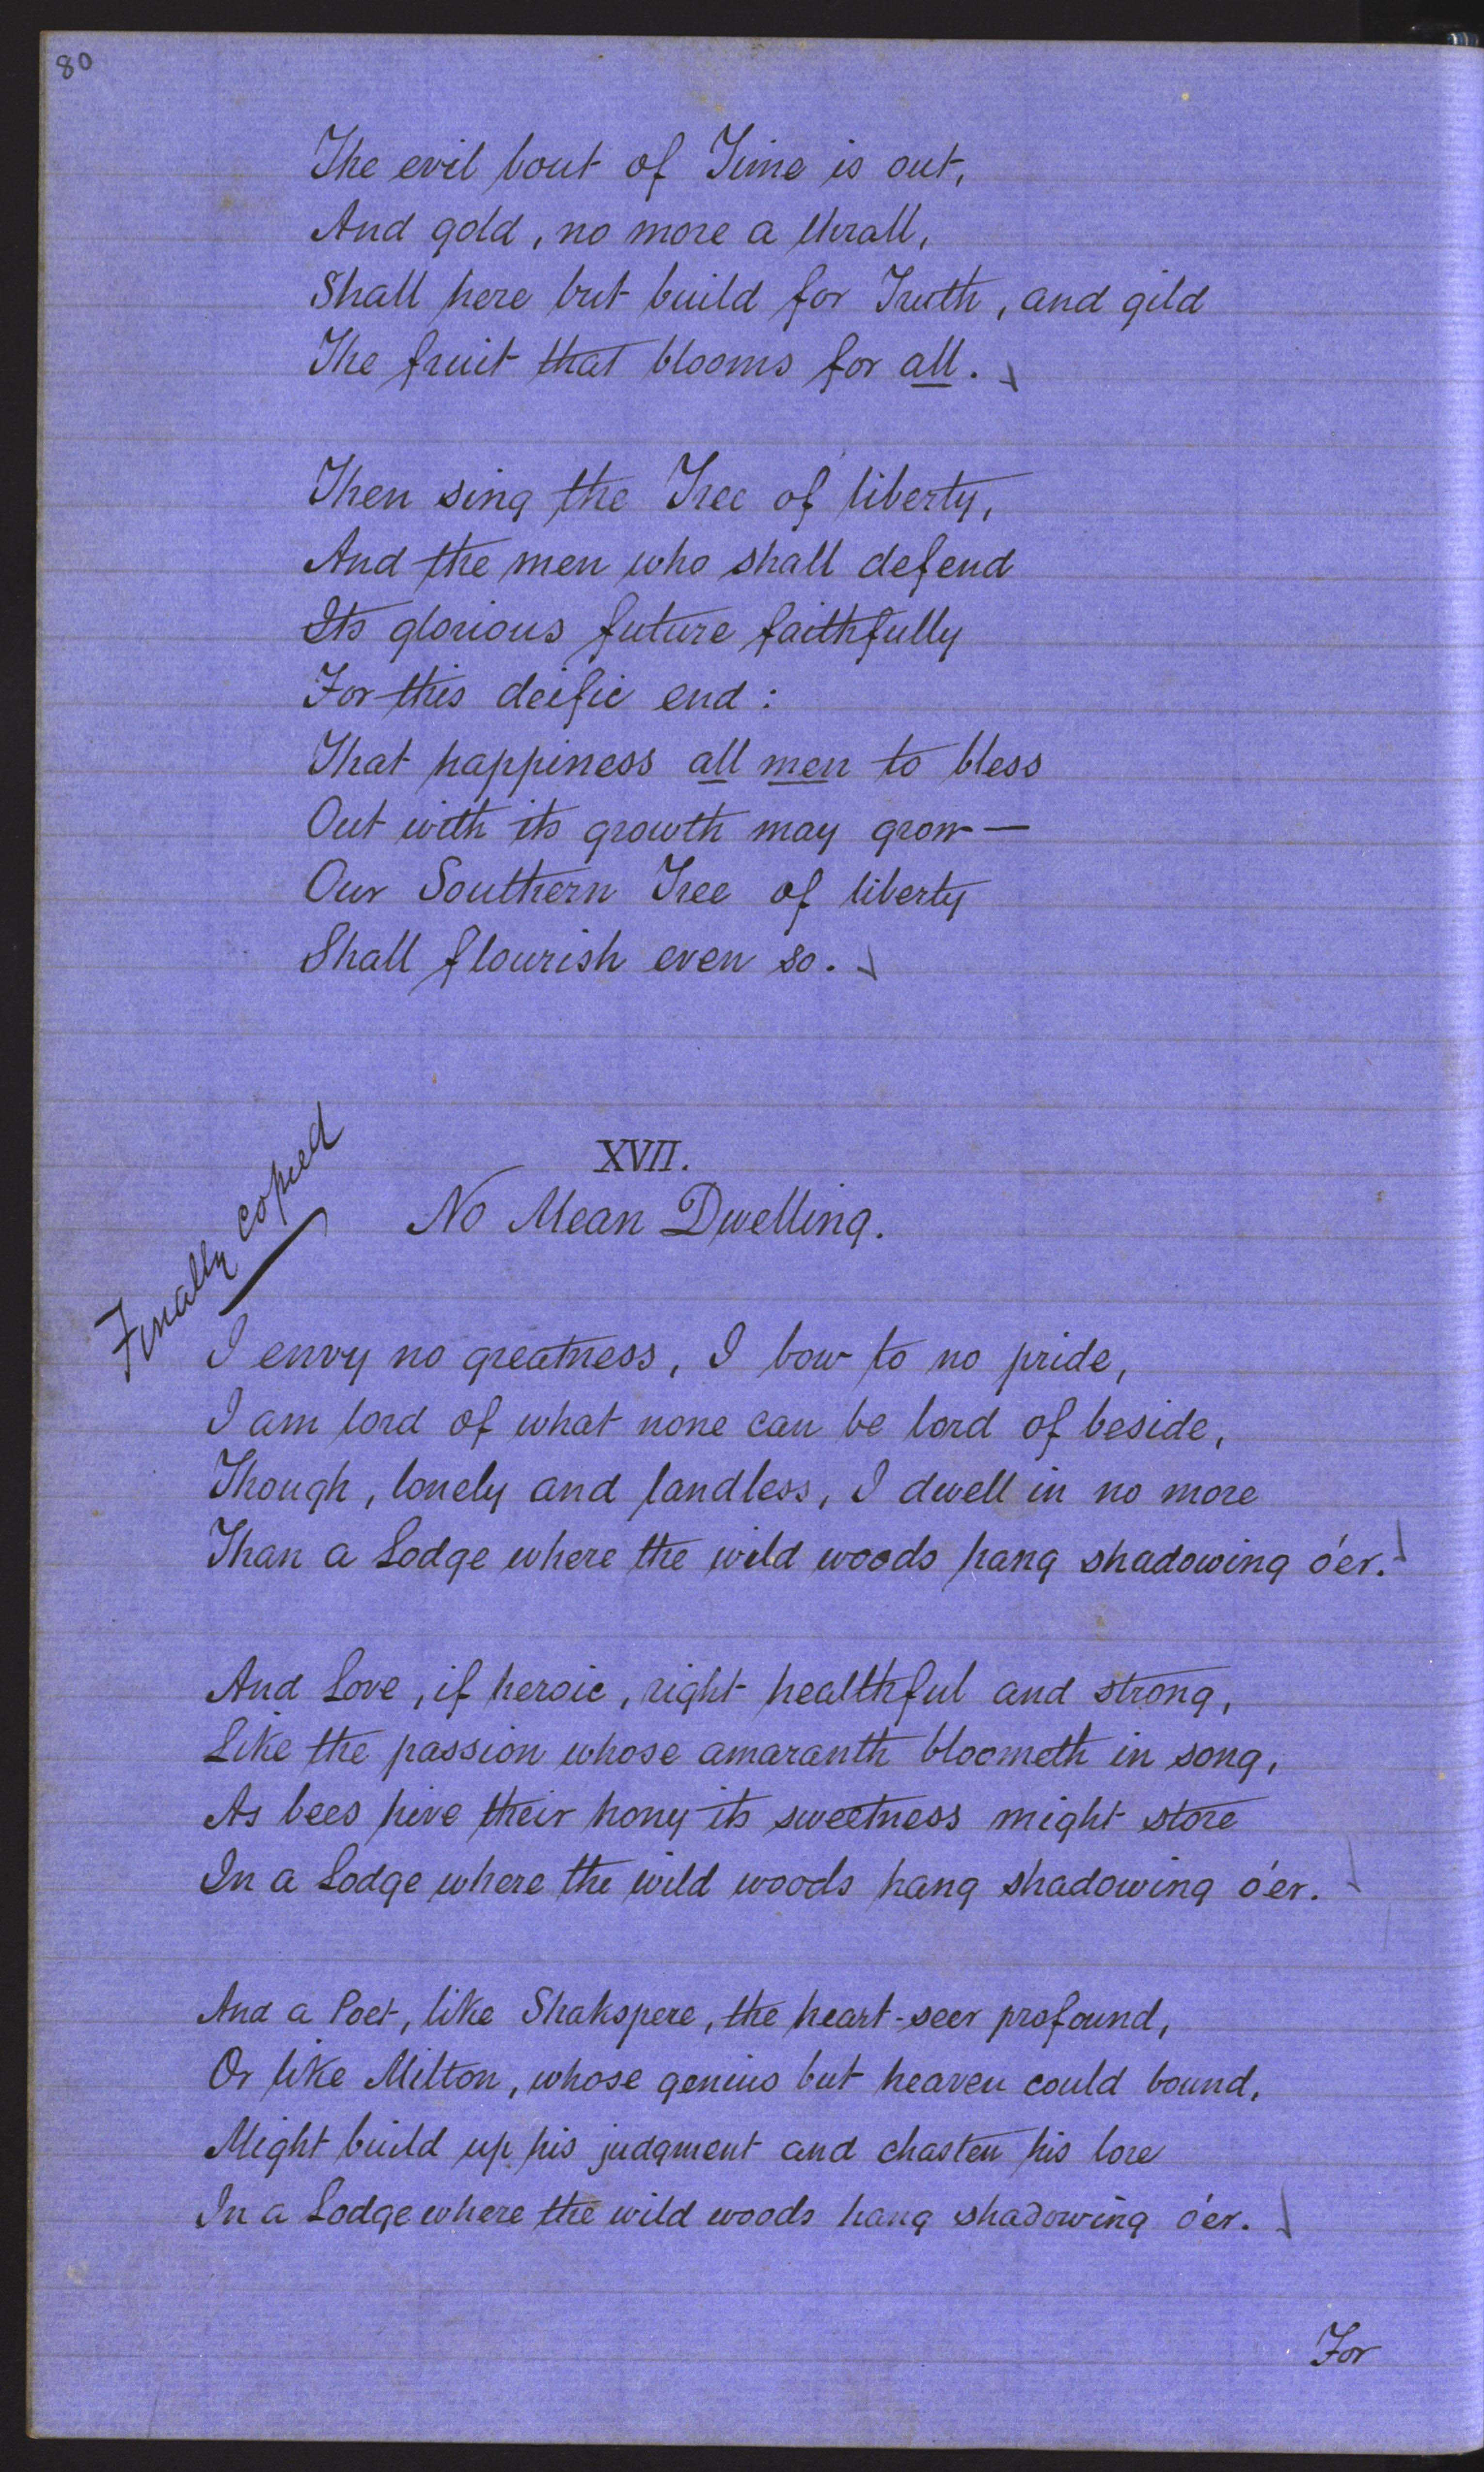 80
The evil bout of Time is out,
And gold, no more a thrall,
Shall here but build for Truth, and gild
The fruit that blooms for all.
Then sing the Tree of liberty,
And the men who shall defend
Its glorious future faithfully
For this deific end:
That happiness all men to bless
Out with its growth may grow—
Our Southern Tree of liberty
Shall flourish even so.
Finally copied
XVII.
No Mean Dwelling.
I envy no greatness, I bow to no pride,
I am lord of what none can be lord of beside,
Though, lonely and landless, I dwell in no more
Than a Lodge where the wild woods hang shadowing o'er.
And Love, if heroic, right healthful and strong,
Like the passion whose amaranth bloometh in song,
As bees hive their hony its sweetness might store
In a Lodge where the wild woods hang shadowing o'er.
And a Poet, like Shakspere, the heart-seer profound,
Or like Milton, whose genius but heaven could bound,
Might build up his judgment and chasten his lore
In a Lodge where the wild woods hang shadowing o'er.
For